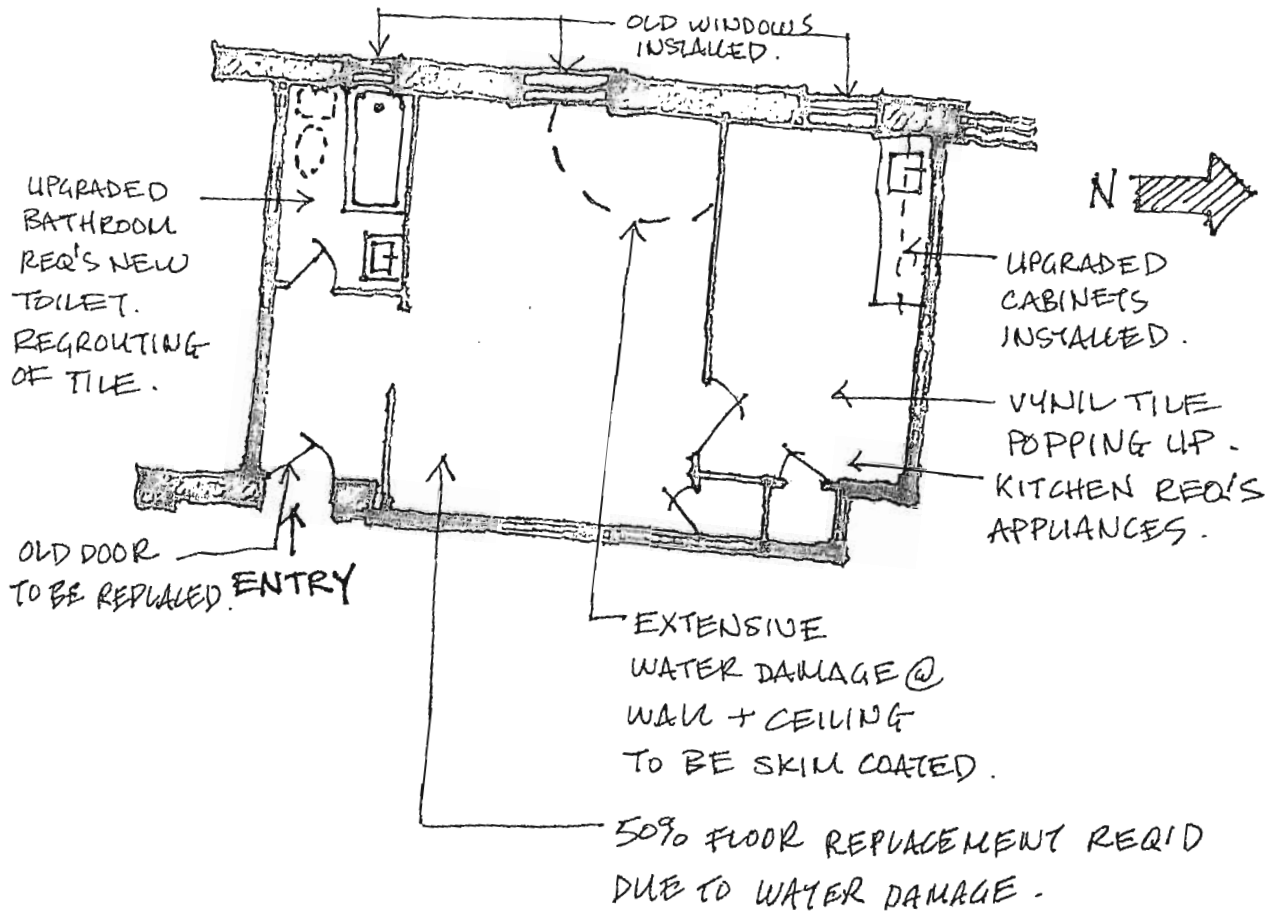 OLD WINDOWS
INSTALLED.
N
UPGRADED
BATHROOM
REQ'S NEW
TOILET.
REGROUTING
OF TILE.
UPGRADED
CABINETS
INSTALLED.
VYNIL TILE
POPPING UP.
KITCHEN REQ'S
APPLIANCES.
OLD DOOR
TO BE REPLACED.
ENTRY
EXTENSIVE
WATER DAMAGE @
WALL + CEILING
TO BE SKIM COATED.
50% FLOOR REPLACEMENT REQ'D
DUE TO WATER DAMAGE.